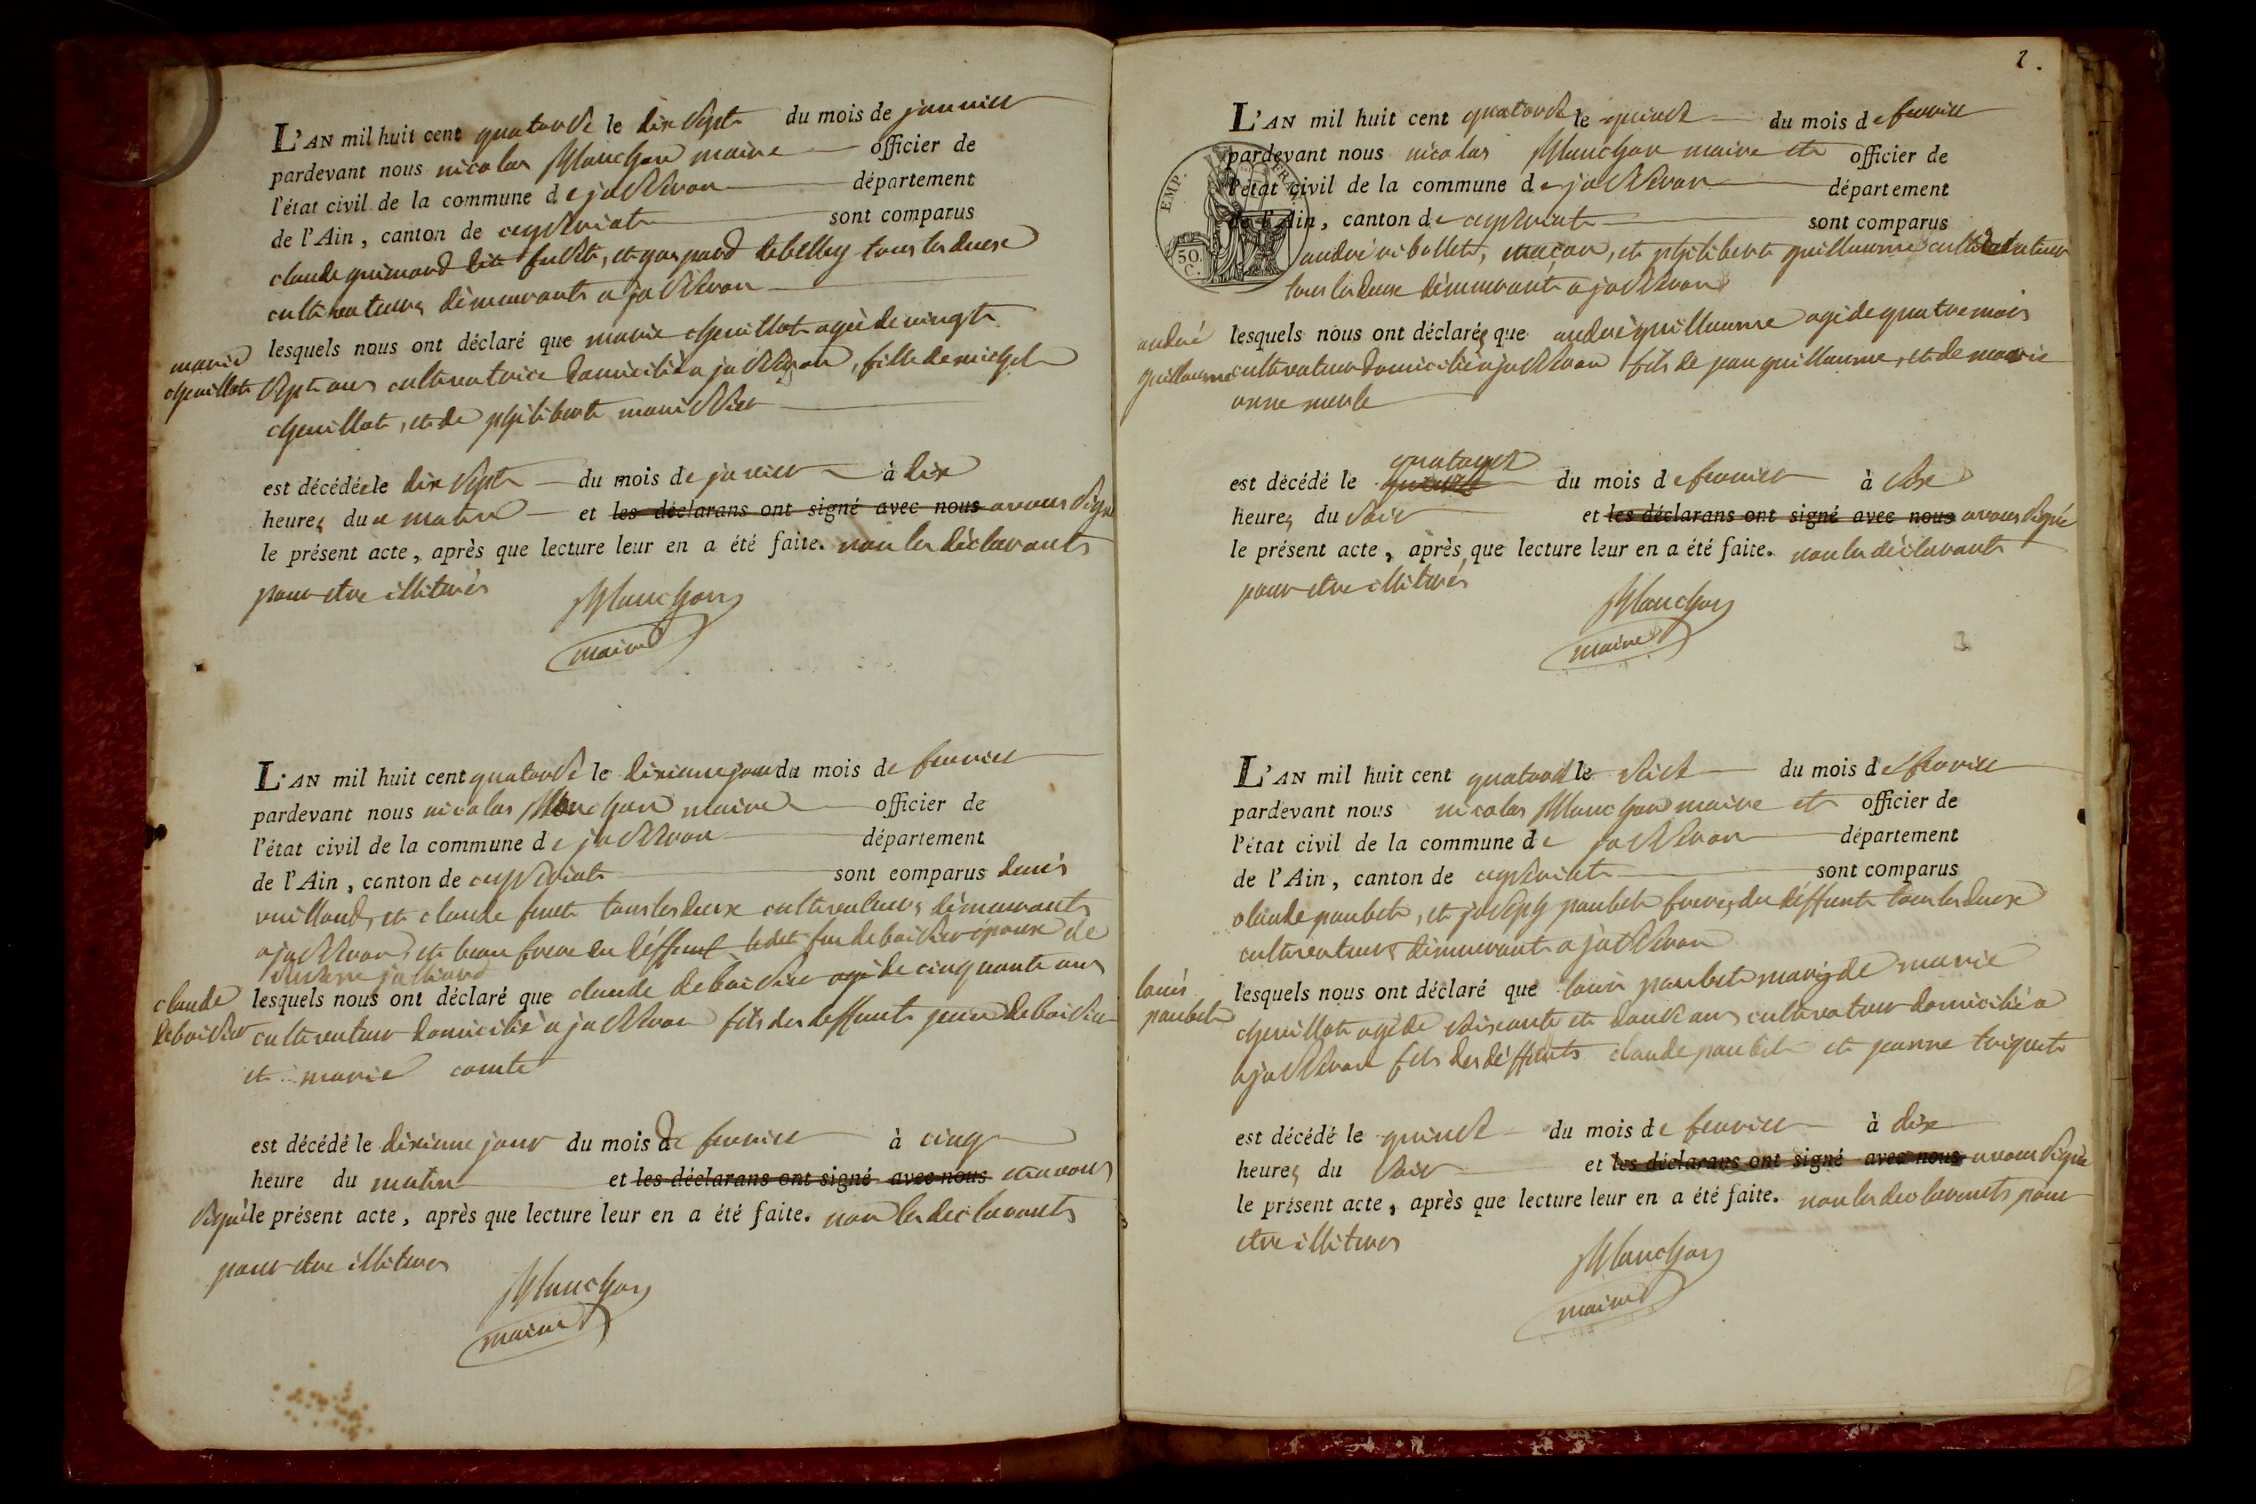 L'AN mil huit cent quatorse le dix sept du mois de janvier
pardevant nous nicolas planchon maire officier de
l'état civil de la commune de jasseron département
de l'Ain, canton de ceyseriat sont comparus
claude guimard dit fuste, et gaspard debelley tous les deux
cultivateurs démeurants a jasseron
marie
chevillot
lesquels nous ont déclaré que marie chevillot agée de vingt
sept ans cultivatrice domicilié a jasseron, fille de michel
chevillot, et de philiberte manissier
est décédée le dix sept du mois de janvier à dix
heures du matin et les déclarans ont signé avec nous avons signé
le présent acte, après que lecture leur en a été faite. non les déclarants
pour etre illiturés
planchon
maire
L'AN mil huit cent quatorse le dixieme jour du mois de fevrier
pardevant nous nicolas planchon maire officier de
l'état civil de la commune de jasseron département
de l'Ain, canton de ceyseriat sont comparus denis
vuilloud, et claude furet tous les deux cultivateurs démeurants
a jasseron, et beau frere du déffunt epoux de
claude
deboisier
lesquels nous ont déclaré que claude deboissier agé de cinquante ans
cultivateur domicilié à jasseron fils des deffunts deboisier
et marie comte
est décédé le dixieme jour du mois de fevrier à cinq
heure du matin et les déclarans ont signé avec nous et avons
signé le présent acte, après que lecture leur en a été faite. non les declarants
pour etre illitures
planchon
maire
2.
L'AN mil huit cent quatorse le quinse du mois de fevrier
pardevant nous nicolas planchon maire et officier de
l'état civil de la commune de jasseron département
de l'Ain, canton de ceyseriat sont comparus
EMP. FRAN.
50 C.
andré ribollet, maçon, et philibert guillaume cultivateur
tous les deux démeurants a jasseron
andré
guillaume
lesquels nous ont déclarés que andré guillaume agé de quatre mois
cultivateur domicilié a jasseron fils de jean guillaume, et de marie
anne merle
quatorse
est décédé le quinse du mois de fevrier à six
heures du soir et les déclarans ont signé avec nous avons signé
le présent acte, après que lecture leur en a été faite. non les déclarants
pour etre illiturés
planchon
maire
L'AN mil huit cent quatorse le seise du mois de fevrier
pardevant nous nicolas planchon maire et officier de
l'état civil de la commune de jasseron département
de l'Ain, canton de ceyseriat sont comparus
claude paubet, et joseph paubet freres du déffunt tous les deux
cultivateurs démeurant a jasseron
louis
paubet
lesquels nous ont déclaré que louis paubet mari de marie
chevillot agé de soixante et douse ans cultivateur domicilié a
a jasseron fils des déffunts claude paubet et jeanne
est décédé le quinse du mois de fevrier à dix
heures du soir et les déclarans ont signé avec nous avons signé
le présent acte, après que lecture leur en a été faite. non les declarants pour
etre illitures
planchon
maire